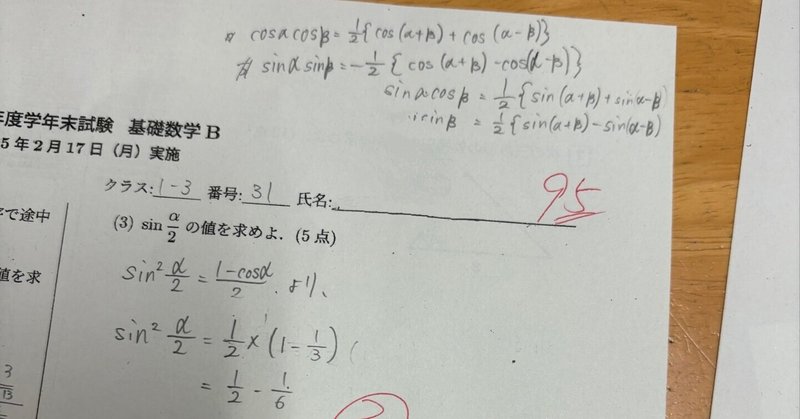 # cosαcosβ=1/2{cos(α+β)+cos(α-β)}
# sinαsinβ=-1/2{cos(α+β)-cos(α-β)}
sinαcosβ=1/2{sin(α+β)+sin(α-β)
sinβ=1/2{sin(α+β)-sin(α-β)
年度学年末試験 基礎数学B
5年2月17日(月)実施
クラス:1-3 番号:31 氏名:
95
字で途中
値を求
3
13
(3) sin α/2 の値を求めよ.(5点)
sin² α/2 = 1-cosα/2 より、
sin² α/2 = 1/2×(1-1/3)
= 1/2 - 1/6